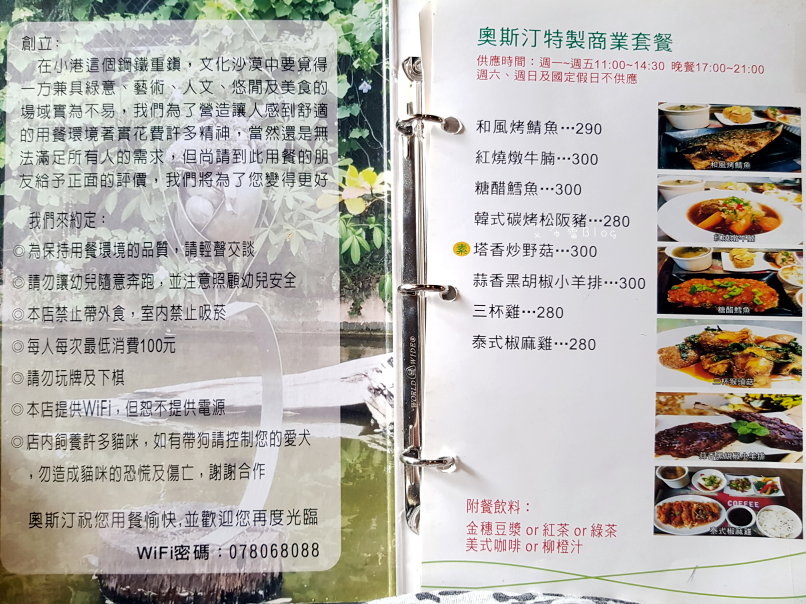 創立:
在小港這個鋼鐵重鎮，文化沙漠中要覓得
一方兼具綠意、藝術、人文、悠閒及美食的
場域實為不易，我們為了營造讓人感到舒適
的用餐環境著實花費許多精神，當然還是無
法滿足所有人的需求，但尚請到此用餐的朋
友給予正面的評價，我們將為了您變得更好
我們來約定:
◎為保持用餐環境的品質，請輕聲交談
◎請勿讓幼兒隨意奔跑，並注意照顧幼兒安全
◎本店禁止帶外食，室內禁止吸菸
◎每人每次最低消費100元
◎請勿玩牌及下棋
◎本店提供WiFi，但恕不提供電源
◎店內飼養許多貓咪，如有帶狗請控制您的愛犬
，勿造成貓咪的恐慌及傷亡，謝謝合作
奧斯汀祝您用餐愉快,並歡迎您再度光臨
WiFi密碼：078068088
WORLD WIDE®
奧斯汀特製商業套餐
供應時間：週一~週五11:00~14:30 晚餐17:00~21:00
週六、週日及國定假日不供應
和風烤鯖魚⋯290
紅燒燉牛腩⋯300
糖醋鱈魚⋯300
韓式碳烤松阪豬⋯280
素 塔香炒野菇⋯300
蒜香黑胡椒小羊排⋯300
三杯雞⋯280
泰式椒麻雞⋯280
和風烤鯖魚
紅燒燉牛腩
糖醋鱈魚
三杯猴頭菇
蒜香黑胡椒小羊排
COFFEE
泰式椒麻雞
Blog
附餐飲料：
金穗豆漿 or 紅茶 or 綠茶
美式咖啡 or 柳橙汁